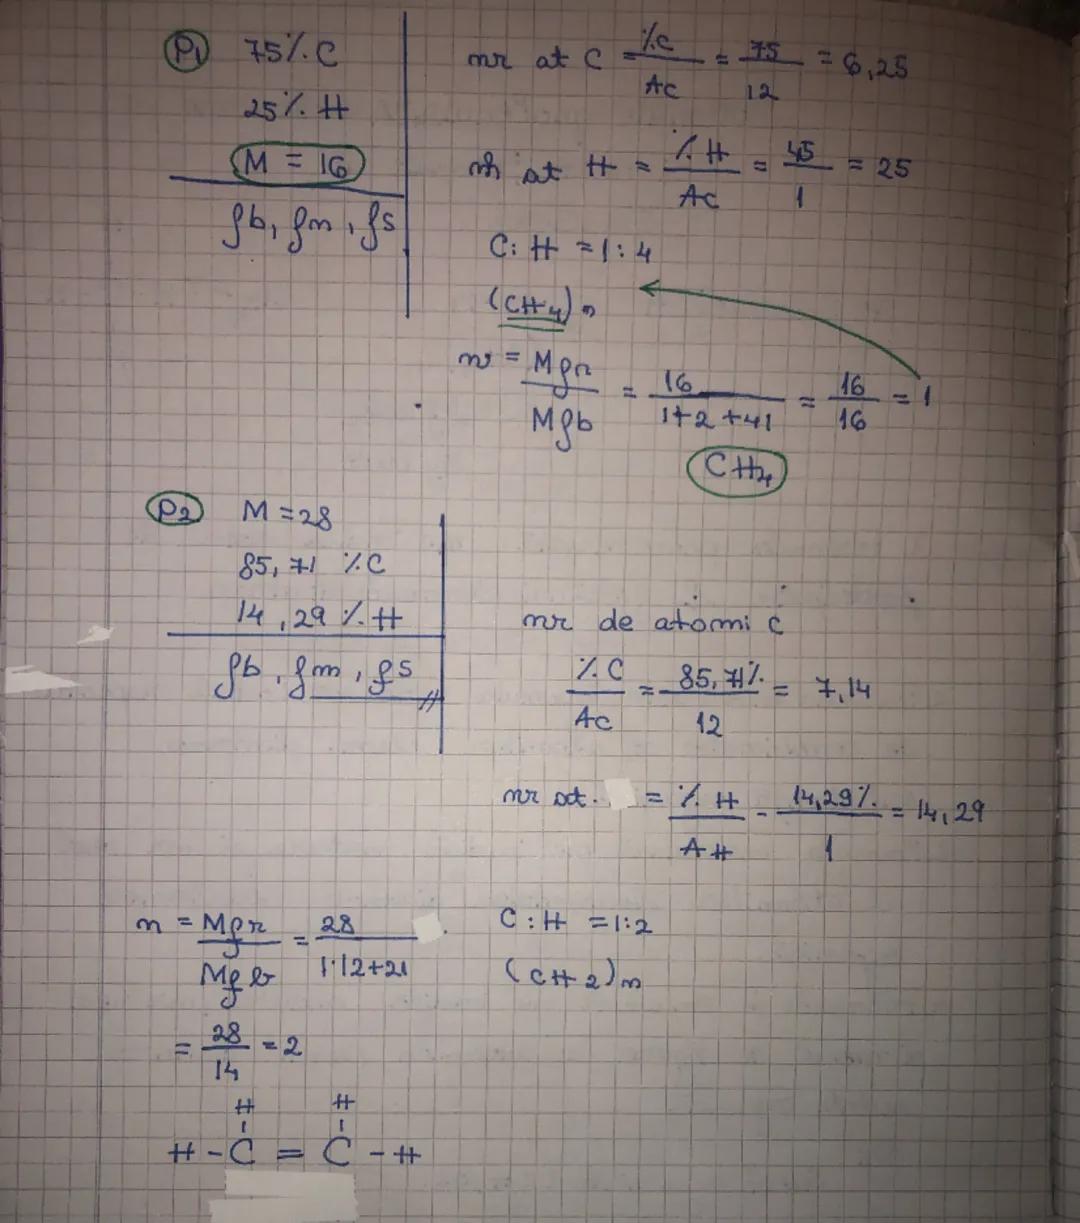 P1 75% C
25% H
M = 16
fb, fm, fs
nr at C = %C/AC = 75/12 = 6,25
nr at H = %H/AC = 45/1 = 25
C: H = 1: 4
(CH4)n
n = Mfr/Mfb = 16/1+2+41 = 16/16 = 1
CH4
P2 M = 28
85,71 % C
14,29 % H
fb, fm, fs
nr de atomi C
%C/AC = 85,71%/12 = 7,14
nr at. = %H/AH - 14,29%/1 = 14,29
n = Mfr/Mfb = 28/1·12+21
C : H = 1:2
(CH2)n
= 28/14 = 2
H H
H - C = C - H